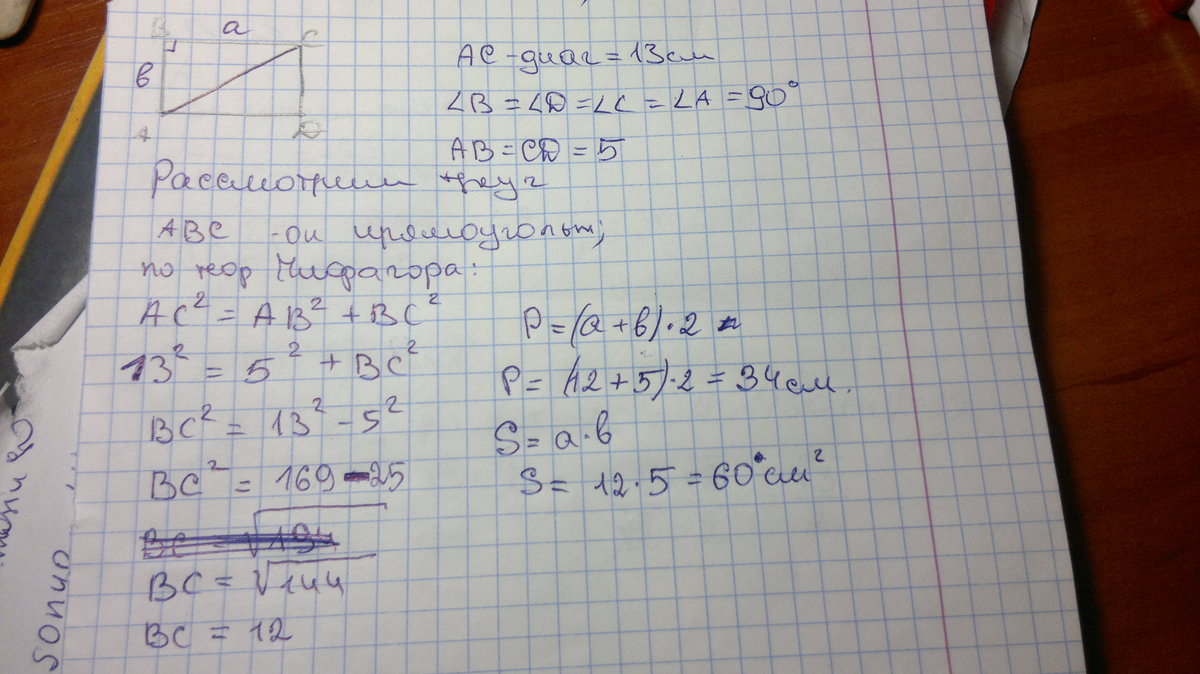 a
B C
в
A D
AC - диаг = 13 см
∠B = ∠D = ∠C = ∠A = 90°
AB = CD = 5
Рассмотрим треуг
ABC - он прямоугольн;
по теор Пифагора:
AC² = AB² + BC²
13² = 5² + BC²
BC² = 13² - 5²
BC² = 169 - 25
BC = √144
BC = 12
P = (a + в) · 2
P = (12 + 5) · 2 = 34 см.
S = a · в
S = 12 · 5 = 60 см²